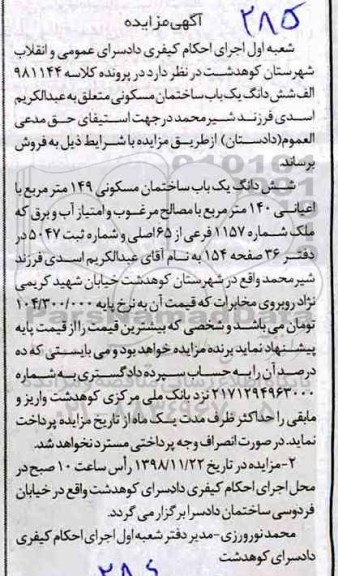 ۲۸۵
آگهی مزایده
شعبه اول اجرای احکام کیفری دادسرای عمومی و انقلاب
شهرستان کوهدشت در نظر دارد در پرونده کلاسه ۹۸۱۱۴۴
الف شش دانگ یک باب ساختمان مسکونی متعلق به عبدالکریم
اسدی فرزند شیرمحمد در جهت استیفای حق مدعی
العموم(دادستان) ازطریق مزایده با شرایط ذیل به فروش
برساند.
شش دانگ یک باب ساختمان مسکونی ۱۴۹ متر مربع با
اعیانی ۱۴۰ متر مربع با مصالح مرغوب و امتیاز آب و برق که
ملک شماره ۱۱۵۷ فرعی از ۶۵اصلی و شماره ثبت ۵۰۴۷ در
دفتر ۳۶ صفحه ۱۵۴ به نام آقای عبدالکریم اسدی فرزند
شیرمحمد واقع در شهرستان کوهدشت خیابان شهید کریمی
نژاد روبروی مخابرات که قیمت آن به نرخ پایه ۱۰۴/۳۰۰/۰۰۰
تومان می باشد و شخصی که بیشترین قیمت را از قیمت پایه
پیشنهاد نماید برنده مزایده خواهد بود و می بایستی که ده
درصد آن را به حساب سپرده دادگستری به شماره
۲۱۷۱۲۹۴۹۶۳۰۰۰ نزد بانک ملی مرکزی کوهدشت واریز و
مابقی را حداکثر ظرف مدت یک ماه از تاریخ مزایده پرداخت
نماید. در صورت انصراف وجه پرداختی مسترد نخواهد شد.
۲-مزایده در تاریخ ۱۳۹۸/۱۱/۲۲ رأس ساعت ۱۰ صبح در
محل اجرای احکام کیفری دادسرای کوهدشت واقع در خیابان
فردوسی ساختمان دادسرا برگزار می گردد.
محمد نوروزی-مدیر دفتر شعبه اول اجرای احکام کیفری
دادسرای کوهدشت